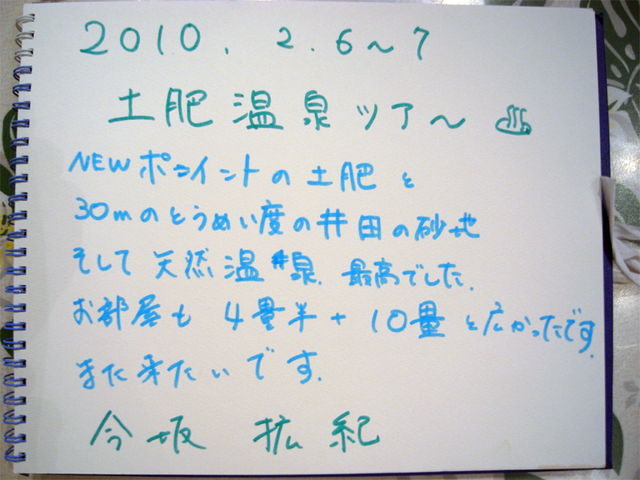 2010. 2.6〜7
土肥温泉ツアー ♨
NEWポイントの土肥と
30mのとうめい度の井田の砂地
そして天然温泉.最高でした.
お部屋も 4畳半+10畳と広かったです.
また来たいです.
今坂 拡紀